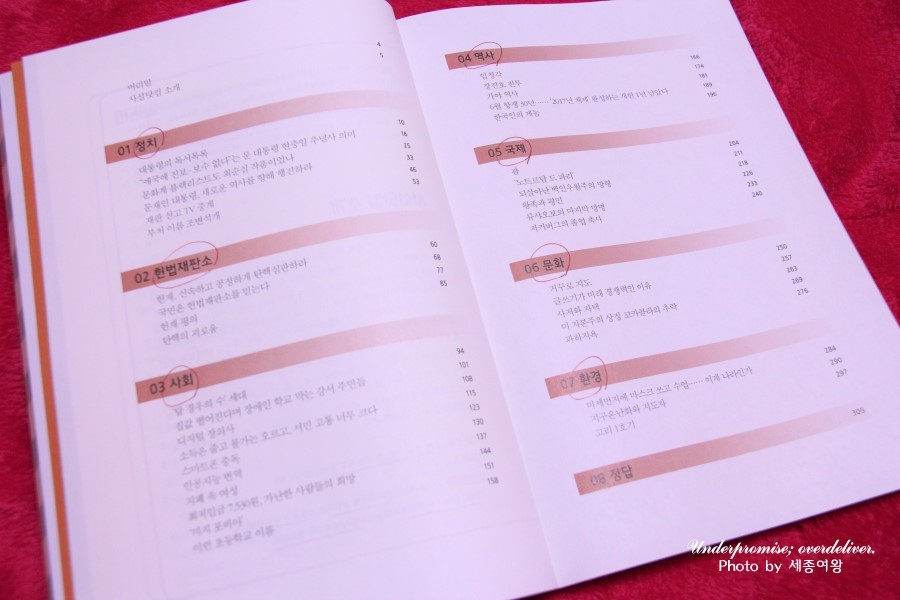 머리말 4
사설닷컴 소개 5
01 정치
대통령의 독서목록 10
"애국에 진보·보수 없다"는 문 대통령 현충일 추념사 의미 16
문화계 블랙리스트도 최순실 작품이었나 25
문재인 대통령, 새로운 역사를 향해 행진하라 33
재판 선고 TV 중계 46
부처 이름 조변석개 53
02 헌법재판소
헌재, 신속하고 공정하게 탄핵심판하라 60
국민은 헌법재판소를 믿는다 68
헌재 평의 77
탄핵의 괴로움 85
03 사회
'달 경우의 수' 세대 94
집값 떨어진다며 장애인 학교 막는 강서 주민들 101
디지털 장의사 108
소득은 줄고 물가는 오르고, 서민 고통 너무 크다 115
스마트폰 중독 123
인공지능 번역 130
지폐 속 여성 137
최저임금 7,530원, 가난한 사람들의 희망 144
'미지 포비아' 151
이런 초등학교 이름 158
04 역사
임청각
장진호 전투 166
가야 역사 174
6월 항쟁 30년…… '2017년 체제' 완성하는 개헌 1년 남았다 181
한국인의 게놈 189
196
05 국제
쿰 204
'노트르담 드 파리' 211
되살아난 백인우월주의 망령 218
왕족과 평민 226
류샤오보의 마지막 망명 233
저커버그의 졸업 축사 240
06 문화
거꾸로 지도 250
글쓰기가 미래 경쟁력인 이유 257
사저와 자택 263
미 자본주의 상징 코카콜라의 추락 269
과하지욕 276
07 환경
미세먼지에 마스크 쓰고 수업…… 이게 나라인가 284
지구온난화와 지도자 290
고리 1호기 297
08 정답 305
Underpromise; overdeliver.
Photo by 세종여왕